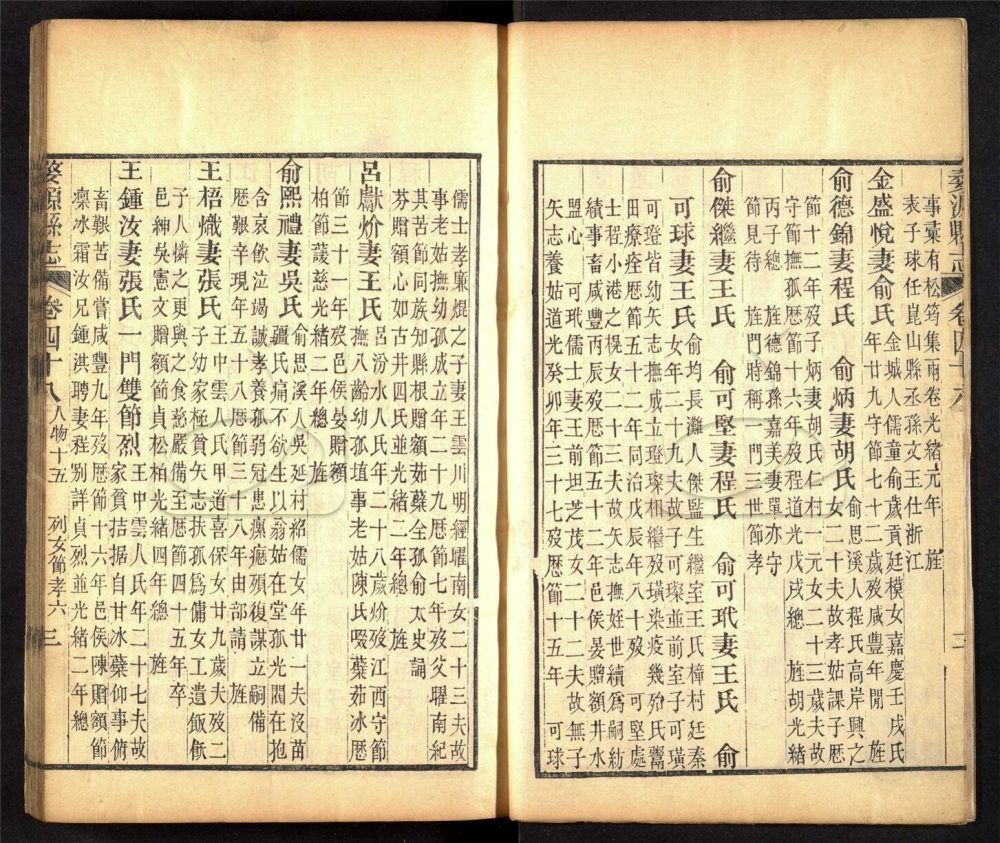 婺源縣志 卷四十八
事藁有松筠集雨卷光緒元年 旌
表子球任崑山縣丞孫文王仕浙江
金盛悅妻俞氏 金城人儒童俞廷模女嘉慶壬戌氏
年廿九守節七十二歲歿咸豐年閒 旌
俞德錦妻程氏 俞炳妻胡氏 俞思溪人程氏高岸興之
女二十夫故孝姑課子歷
節十二年歿子炳妻胡氏仁村一元女二十三歲夫故
守節撫孤歷節十六年歿程道光戊戌總 旌胡光緒
丙子總 旌德錦孫嘉美妻單亦守
節見待 旌門時稱一門三世節孝
俞傑繼妻王氏 俞可堅妻程氏 俞可玳妻王氏 俞
可球妻王氏 俞均長灘人傑監生繼室王氏樟村廷秦
女年二十九夫故子可璨並前室子可璜
可璒皆幼矢志撫成立璒璨相繼歿璜染疫幾殆氏鬻
田療痊歷節五十二年同治戊辰年八十歿 可堅處
士程氏小港之楔女二十三夫故矢志撫姪世續爲嗣紡
績事畜咸豐丙辰歿歷節五十二年邑侯晏贈額井水
盟心 可玳儒士妻王前坦芝茂女二十二夫故無子
矢志養姑道光癸卯年三十七歿歷節十五年 可球
儒士孝廉焜之子妻王雲川明經曜南女二十三夫故
事老姑撫幼孤成立年二十九歷節七年歿父曜南紀
其苦節同族知縣根贈額茹蘖全孤俞太史誦
芬贈額心如古井四氏並光緒二年總 旌
呂獻妢妻王氏 呂汾水人氏年二十八歲妢歿江西守節
撫八齡幼孤塡事老姑陳氏啜蘖茹冰歷
節三十一年歿邑侯晏贈額
柏節護慈光緒二年總 旌
俞熙禮妻吳氏 俞思溪人吳延村紹儒女年廿一夫沒苗
疆氏痛不欲生以翁姑在堂孤光閥在抱
含哀飲泣竭誠孝養孤弱冠患瘰癧殞復謀立嗣備
歷艱辛現年五十八歷節三十八年由部請 旌
王梧熾妻張氏 王中雲人氏甲道喜保女廿九歲夫歿二
子幼家極貧矢志扶孤爲傭女工遺飯飯
子人憐之更與之食慈嚴備至歷節四十五年卒
邑紳吳憲文贈額節貞松柏光緒四年總 旌
王鍾汝妻張氏一門雙節烈 王中雲人氏年二十七夫故
家貧拮据自甘冰蘖仰事俯
畜艱苦備嘗咸豐九年歿歷節十六年邑侯陳贈額節
凜冰霜汝兄鍾淇聘妻程別詳貞烈並光緒二年總
婺源縣志 卷四十八 人物十五 列女節孝六 三